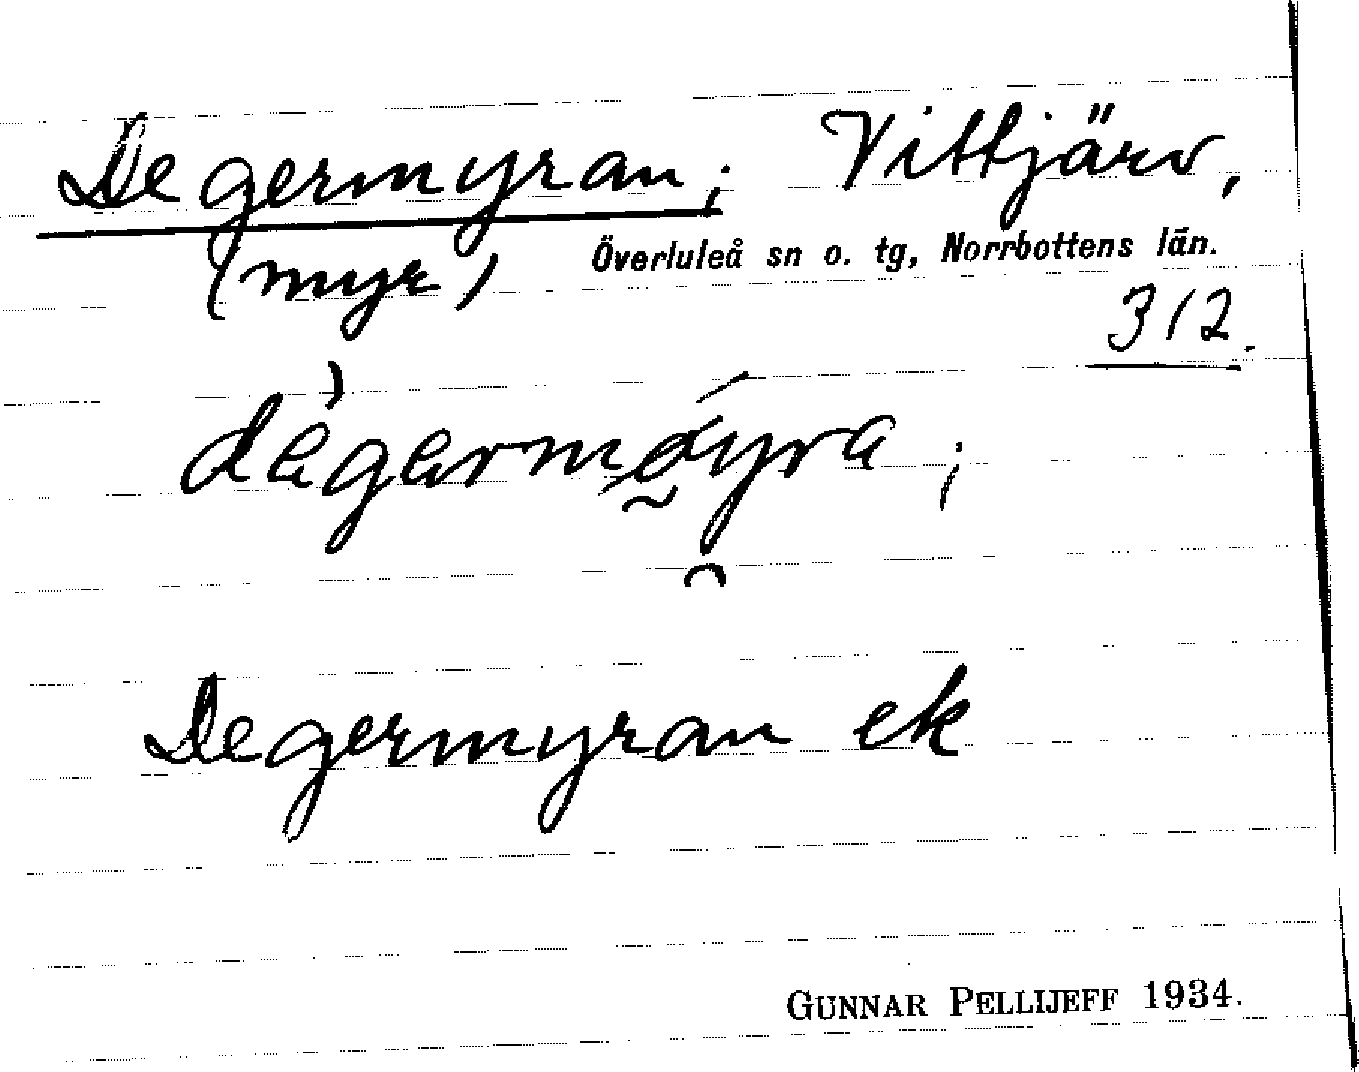 Degermyran; Vittjärv,
(myr) Överluleå sn o. tg, Norrbottens län.
312.
Degermyran ek
GUNNAR PELLIJEFF 1934.